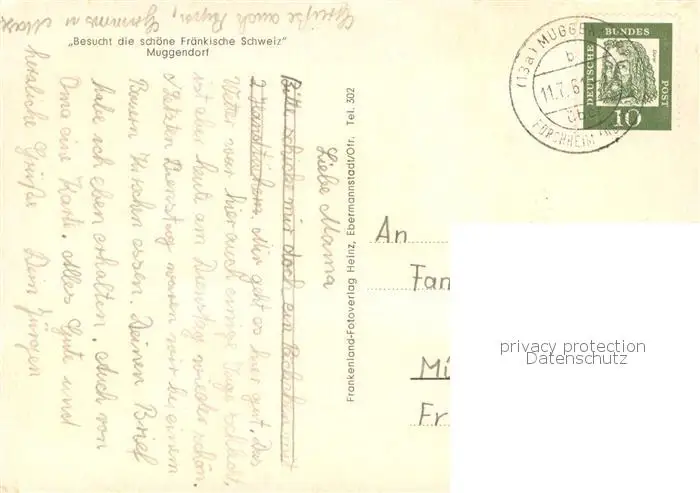 Grüße auch Papa,
„Besucht die schöne Fränkische Schweiz"
Muggendorf
Liebe Mama
Bitte schicke mir doch ein Päckchen mit
2 Handtüchern. Mir geht es hier gut. Das
Wetter war hier auch einige Tage schlecht,
ist aber heute am Dienstag wieder schön.
Letzten Dienstag waren wir bei einem
Bauern Kirschen essen. Deinen Brief
habe ich eben erhalten. Auch von
Oma eine Karte. Alles Gute und
herzliche Grüße Dein Jürgen
Frankenland-Fotoverlag Heinz, Ebermannstadt/Ofr. Tel. 302
(13a) MUGGEN
b
11.7.61
über
FORCHHEIM
DEUTSCHE BUNDES POST
Dürer
10
An
Fam
Mü
Fr
privacy protection
Datenschutz